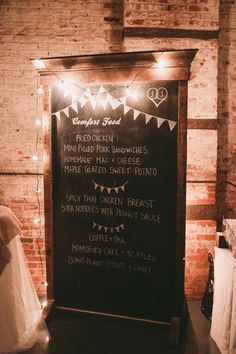 Comfort Food
FRIED CHICKEN
MINI PULLED PORK SANDWICHES
HOMEMADE MAC + CHEESE
MAPLE GLAZED SWEET POTATO
SPICY THAI CHICKEN BREAST
SOBA NOODLES WITH PEANUT SAUCE
COFFEE + TEA
MOMOFUKU CAKE + TRUFFLES
DONUT PLANT DONUTS + CANDY